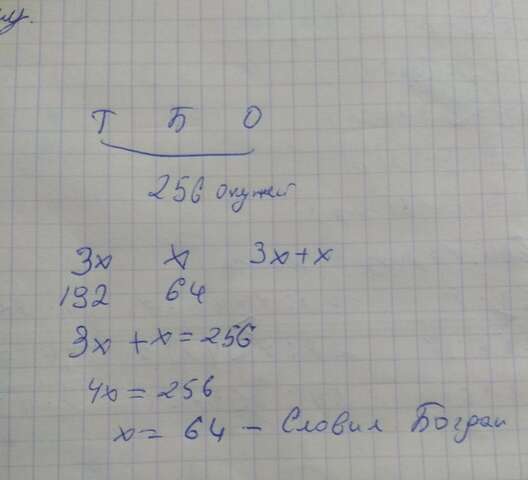 у.
Т Б О
256 окуней
3х х 3х+х
192 64
3х + х = 256
4х = 256
х = 64 - Словил Богдан